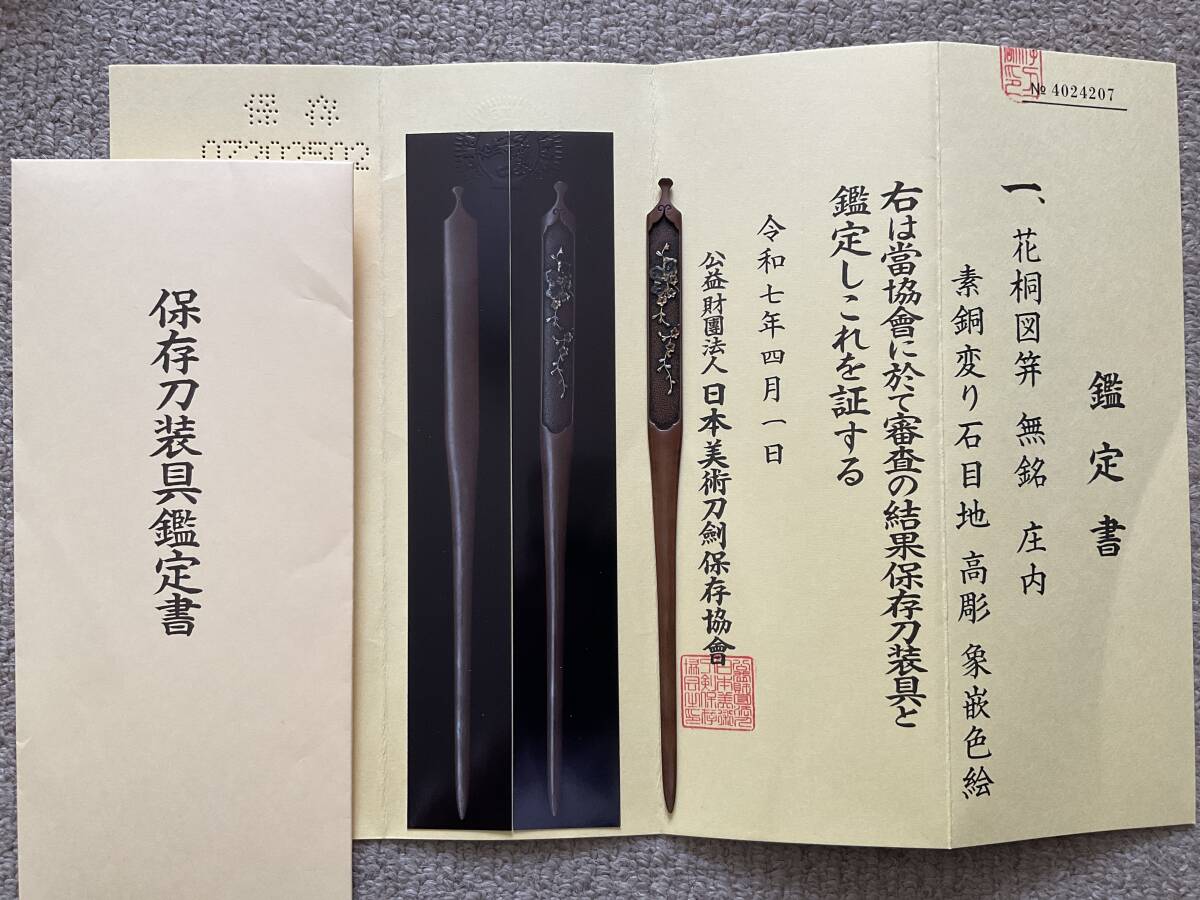 № 4024207
鑑定書
一、花桐図笄 無銘 庄内
素銅変り石目地 高彫 象嵌色絵
右は當協會に於て審査の結果保存刀装具と
鑑定しこれを証する
令和七年四月一日
公益財團法人 日本美術刀劍保存協會
保存
保存刀装具鑑定書